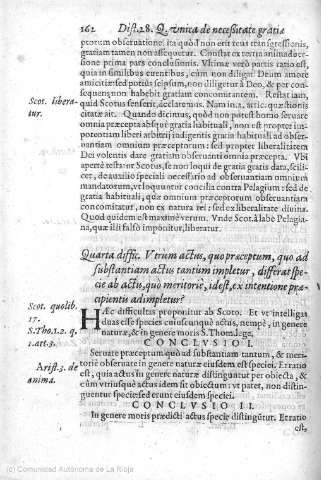 162 Dist. 28. Q. vnica de necessitate gratiæ
ptorum obseruatione: ita quòd non erit reus transgressionis,
gratiam tamen non assequetur. Constat ex tertia animaduer-
sione prima pars conclusionis. Vltima verò partis ratio est,
quia in similibus euentibus, cùm non diligat Deum amore
amicitiæ sed potiùs seipsum, non diligetur à Deo, & per con-
sequens non habebit gratiam concomitantem. Restat iam,
quid Scotus senserit, declaremus. Nam in. 2. artic. quæstionis
citatæ ait. Quando dicimus, quòd non potest homo seruare
omnia præcepta absque gratia habituali, non est propter im-
potentiam liberi arbitrij indigentis gratia habituali ad obser-
uantiam omnium præceptorum: sed propter liberalitatem
Dei volentis dare gratiam obseruanti omnia præcepta. Vbi
apertè testatur Scotus, se non loqui de gratia gratis data, scili-
cet, de auxilio speciali necessario ad obseruantiam omnium
mandatorum, vt loquuntur concilia contra Pelagium: sed de
gratia habituali, propter quam obseruantia omnium habet
concomitantiam, non ex natura rei: sed ex liberalitate diuina.
Quod quidem est maximè verum. Vnde Scot. à labe Pelagia-
na, quæ illi falsò imponitur, liberatur.
Scot. libera-
tur.
Quarta diffic. Vtrum actus, quo præceptum, quo ad
substantiam actus tantùm impletur, differat spe-
cie ab actu, quo meritoriè, id est, ex intentione præ-
cipientis adimpletur?
Scot. quolib.
17.
S. Tho. 1. 2. q.
1. art. 3.
HÆc difficultas proponitur ab Scoto. Et vt intelligas
duas esse species cuiuscunque actus, nempè, in genere
naturæ, & in genere moris S. Thom. lege.
CONCLVSIO I.
Arist. 3. de
anima.
Seruare præceptum quo ad substantiam tantùm, & meri-
toriè obseruare in genere naturæ eiusdem est speciei. Erratio
est, quia actus in genere naturæ distinguuntur per obiecta, &
cùm vtriusque actus idem sit obiectum: vt patet, non distin-
guuntur specie sed erunt eiusdem speciei.
CONCLVSIO II.
In genere moris prædicti actus specie distingũtur. Erratio
est,
(c) Comunidad Autónoma de La Rioja